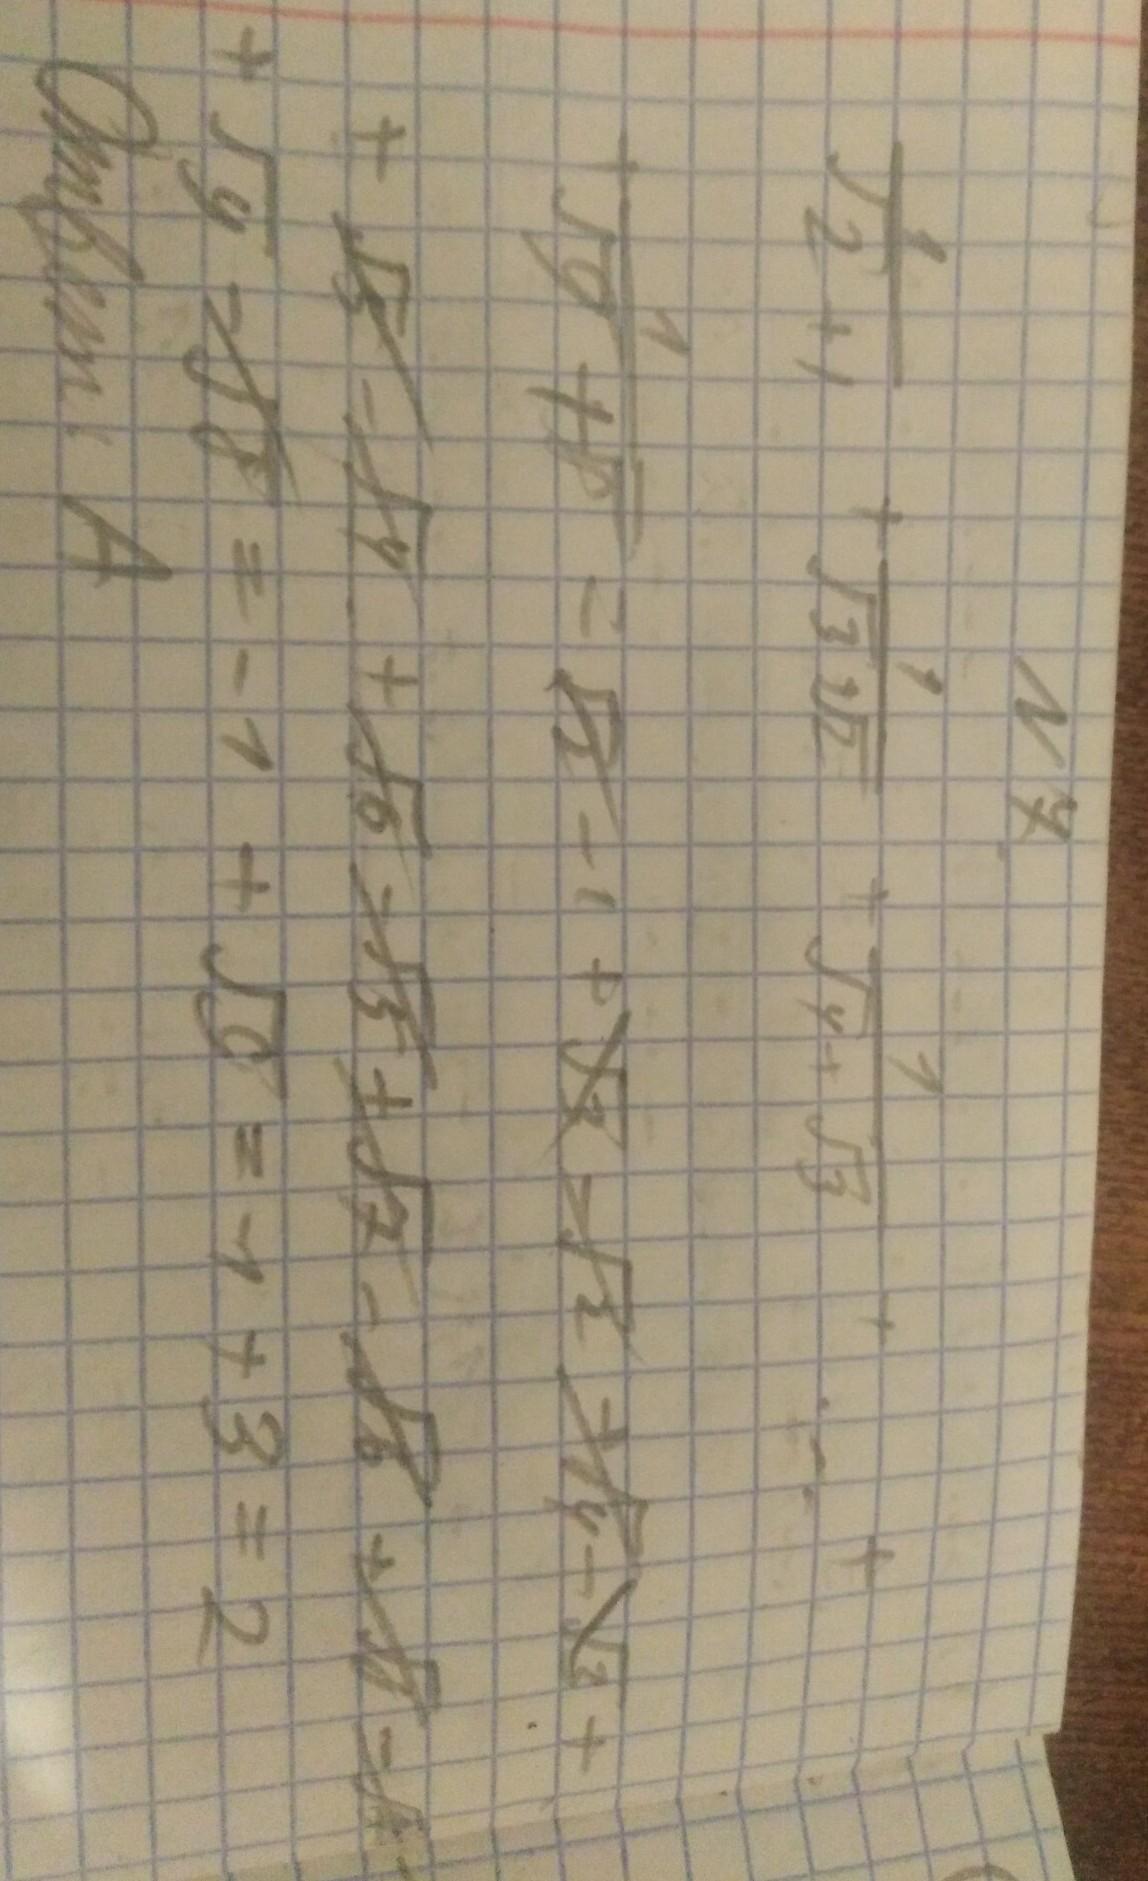 N 7
1/(√2+1) + 1/(√3+√2) + 1/(√4+√3) + ... +
+ 1/(√9+√8) = √2 - 1 + √3 - √2 + √4 - √3 +
+ √5 - √4 + √6 - √5 + √7 - √6 + √8 - √7
+ √9 - √8 = -1 + √9 = -1 + 3 = 2
Ответ: А